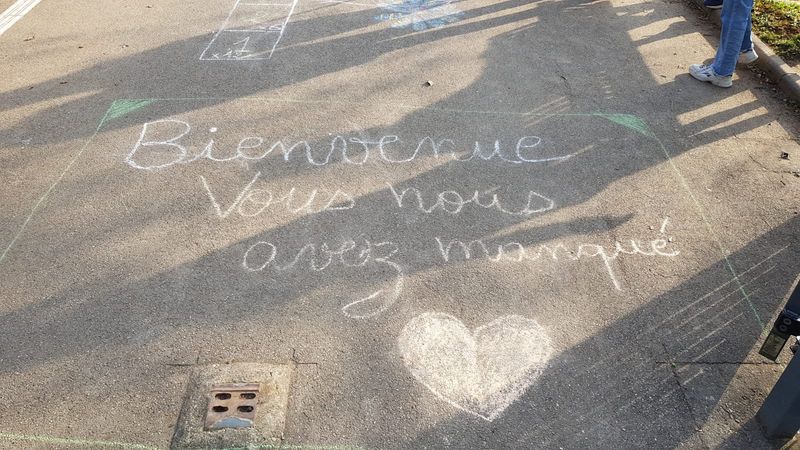 1
Bienvenue
Vous nous
avez manqué